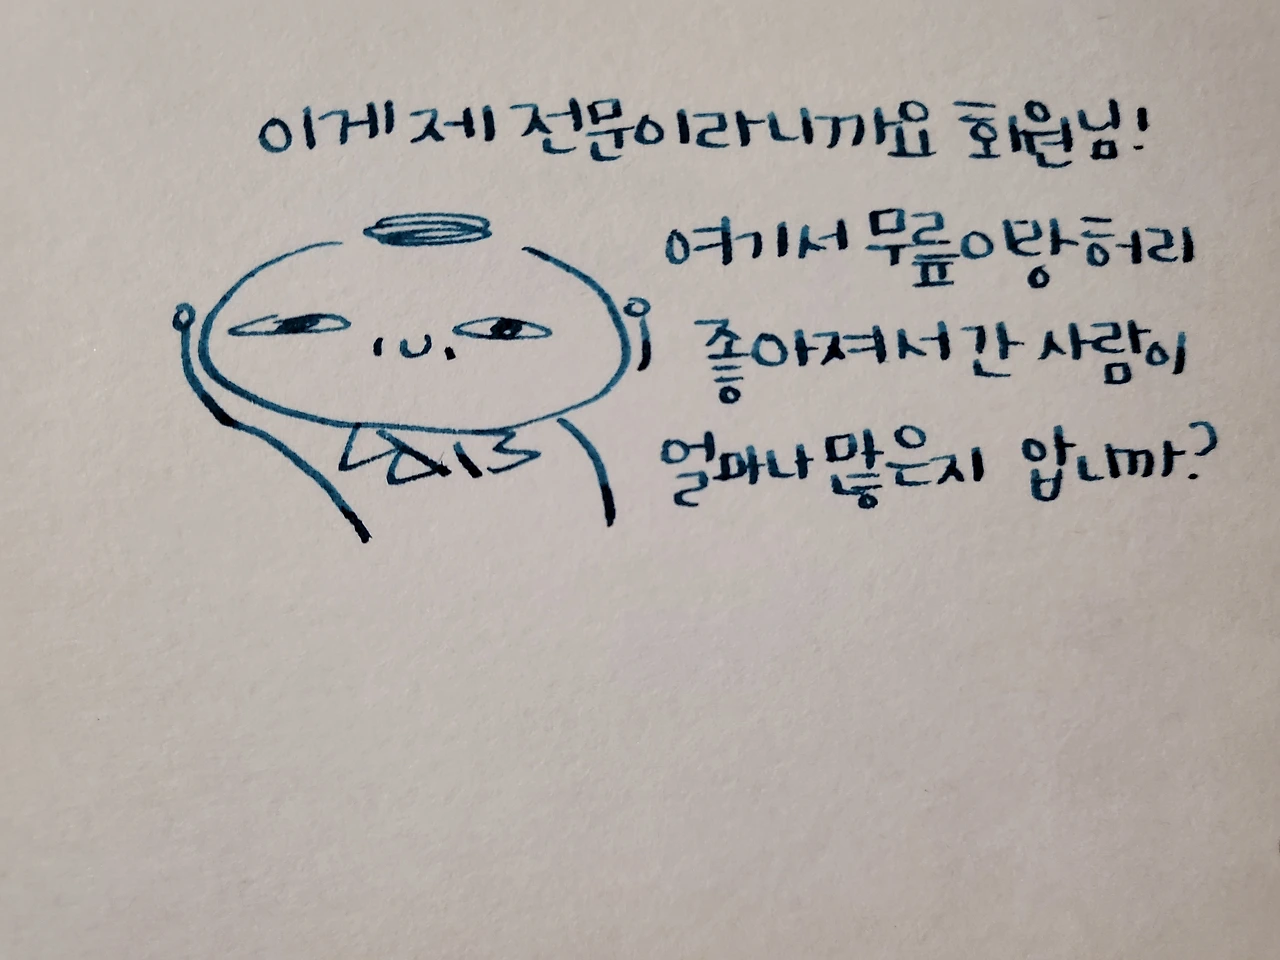 이게 제 전문이라니까요 회원님!
여기서 무릎이랑 허리
좋아져서 간 사람이
얼마나 많은지 압니까?